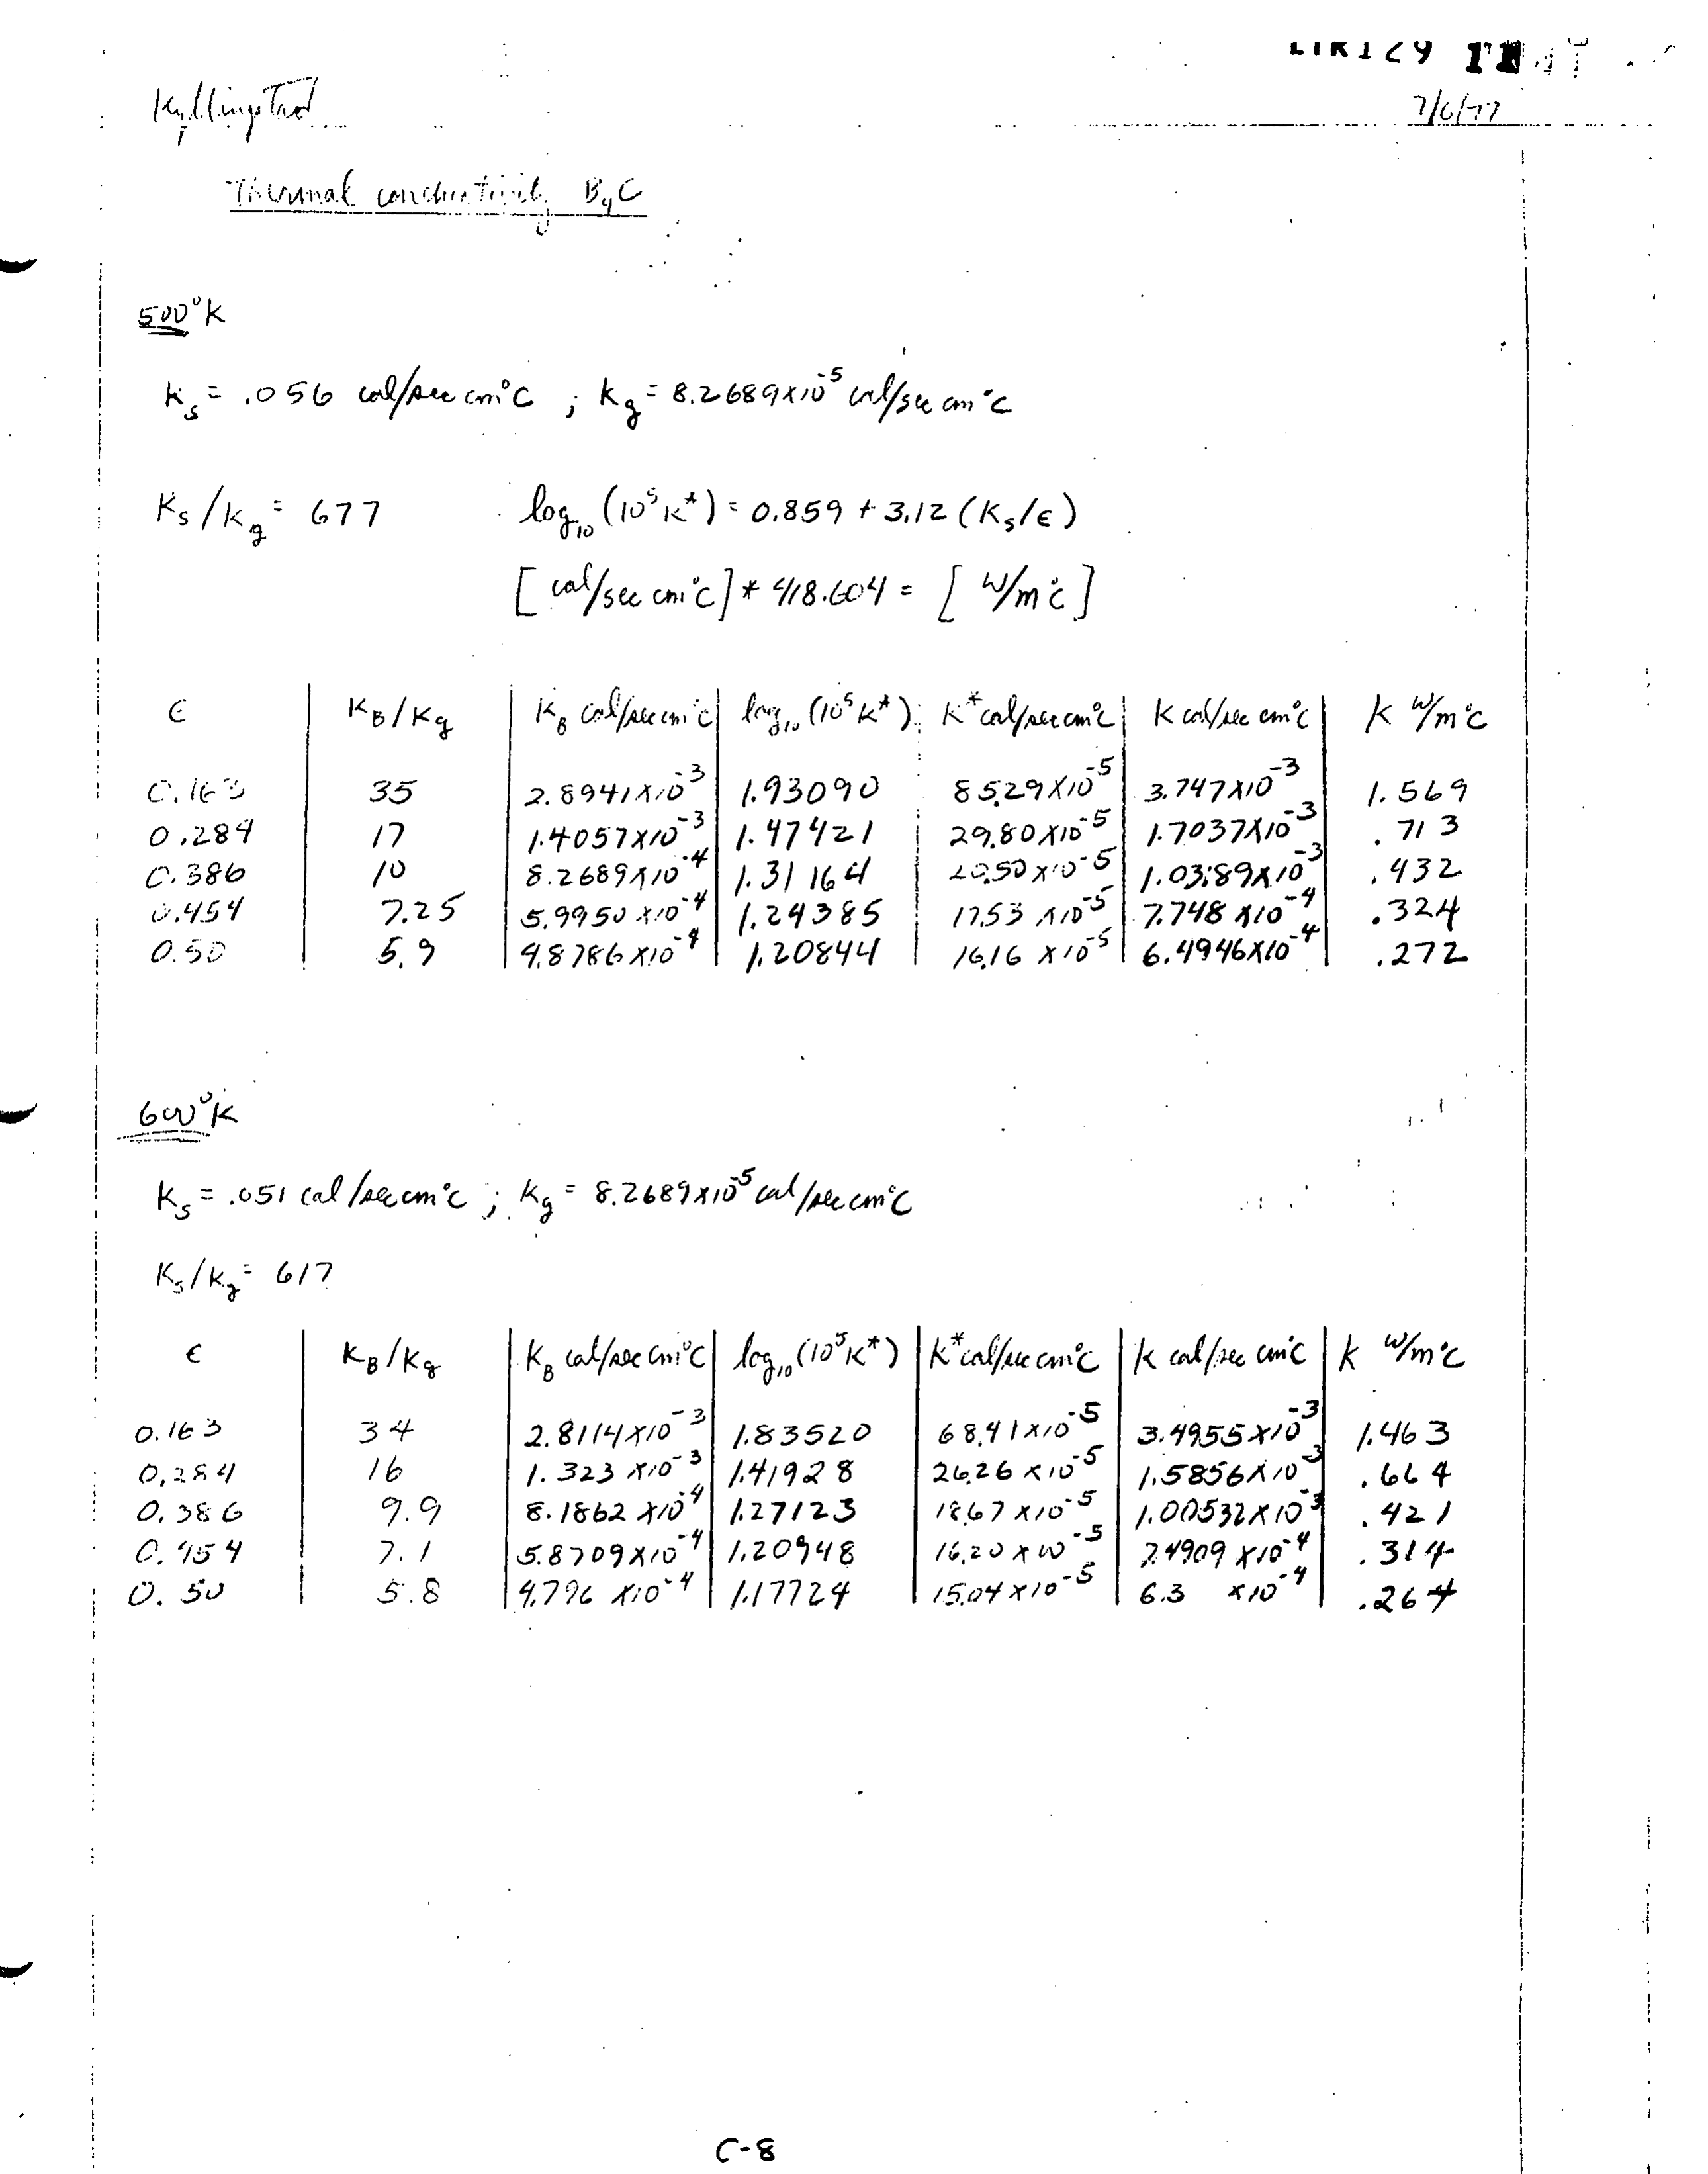 Kyllingstad
7/6/77
Thermal conductivity B₄C
500°K
Kₛ = .056 cal/sec cm°C ; K_g = 8.2689×10⁻⁵ cal/sec cm °C
Kₛ/K_g = 677 log₁₀(10⁵K*) = 0.859 + 3.12 (Kₛ/ε)
[cal/sec cm°C] * 418.604 = [W/m°C]
ε | K_B/K_g | K_B cal/sec cm°C | log₁₀(10⁵K*) | K* cal/sec cm°C | K cal/sec cm°C | K W/m°C
0.163 | 35 | 2.8941×10⁻³ | 1.93090 | 85.29×10⁻⁵ | 3.747×10⁻³ | 1.569
0.284 | 17 | 1.4057×10⁻³ | 1.47421 | 29.80×10⁻⁵ | 1.7037×10⁻³ | .713
0.386 | 10 | 8.2689×10⁻⁴ | 1.31164 | 20.50×10⁻⁵ | 1.0389×10⁻³ | .432
0.454 | 7.25 | 5.9950×10⁻⁴ | 1.24385 | 17.53×10⁻⁵ | 7.748×10⁻⁴ | .324
0.50 | 5.9 | 4.8786×10⁻⁴ | 1.20844 | 16.16×10⁻⁵ | 6.4946×10⁻⁴ | .272
600°K
Kₛ = .051 cal/sec cm°C ; K_g = 8.2689×10⁻⁵ cal/sec cm°C
Kₛ/K_g = 617
ε | K_B/K_g | K_B cal/sec cm°C | log₁₀(10⁵K*) | K* cal/sec cm°C | K cal/sec cm°C | K W/m°C
0.163 | 34 | 2.8114×10⁻³ | 1.83520 | 68.41×10⁻⁵ | 3.4955×10⁻³ | 1.463
0.284 | 16 | 1.323×10⁻³ | 1.41928 | 26.26×10⁻⁵ | 1.5856×10⁻³ | .664
0.386 | 9.9 | 8.1862×10⁻⁴ | 1.27123 | 18.67×10⁻⁵ | 1.00532×10⁻³ | .421
0.454 | 7.1 | 5.8709×10⁻⁴ | 1.20948 | 16.20×10⁻⁵ | 7.4909×10⁻⁴ | .314
0.50 | 5.8 | 4.796×10⁻⁴ | 1.17724 | 15.04×10⁻⁵ | 6.3 ×10⁻⁴ | .264
C-8